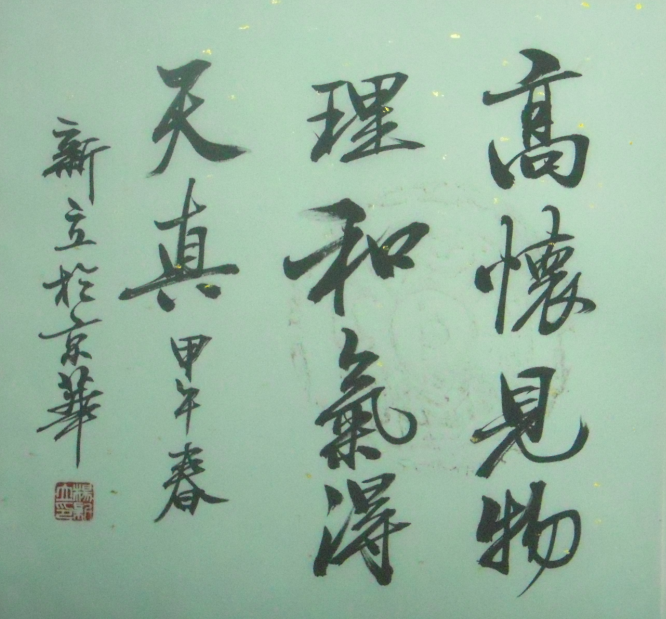 高懷見物
理和氣得
天真甲午春
新立於京華
楊新立印